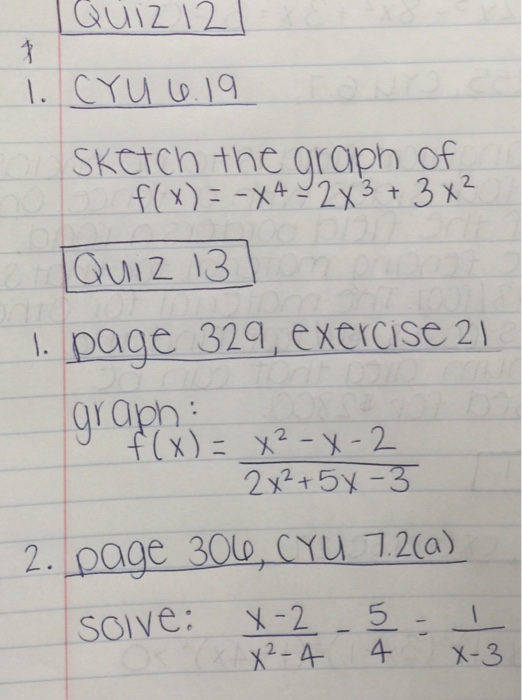 QUIZ 12
*
1. CYU 6.19
sketch the graph of
f(x) = -x⁴ - 2x³ + 3x²
QUIZ 13
1. page 329, exercise 21
graph:
f(x) = x² - x - 2
2x² + 5x - 3
2. page 306, CYU 7.2(a)
solve: x-2 / x²-4 - 5/4 = 1 / x-3